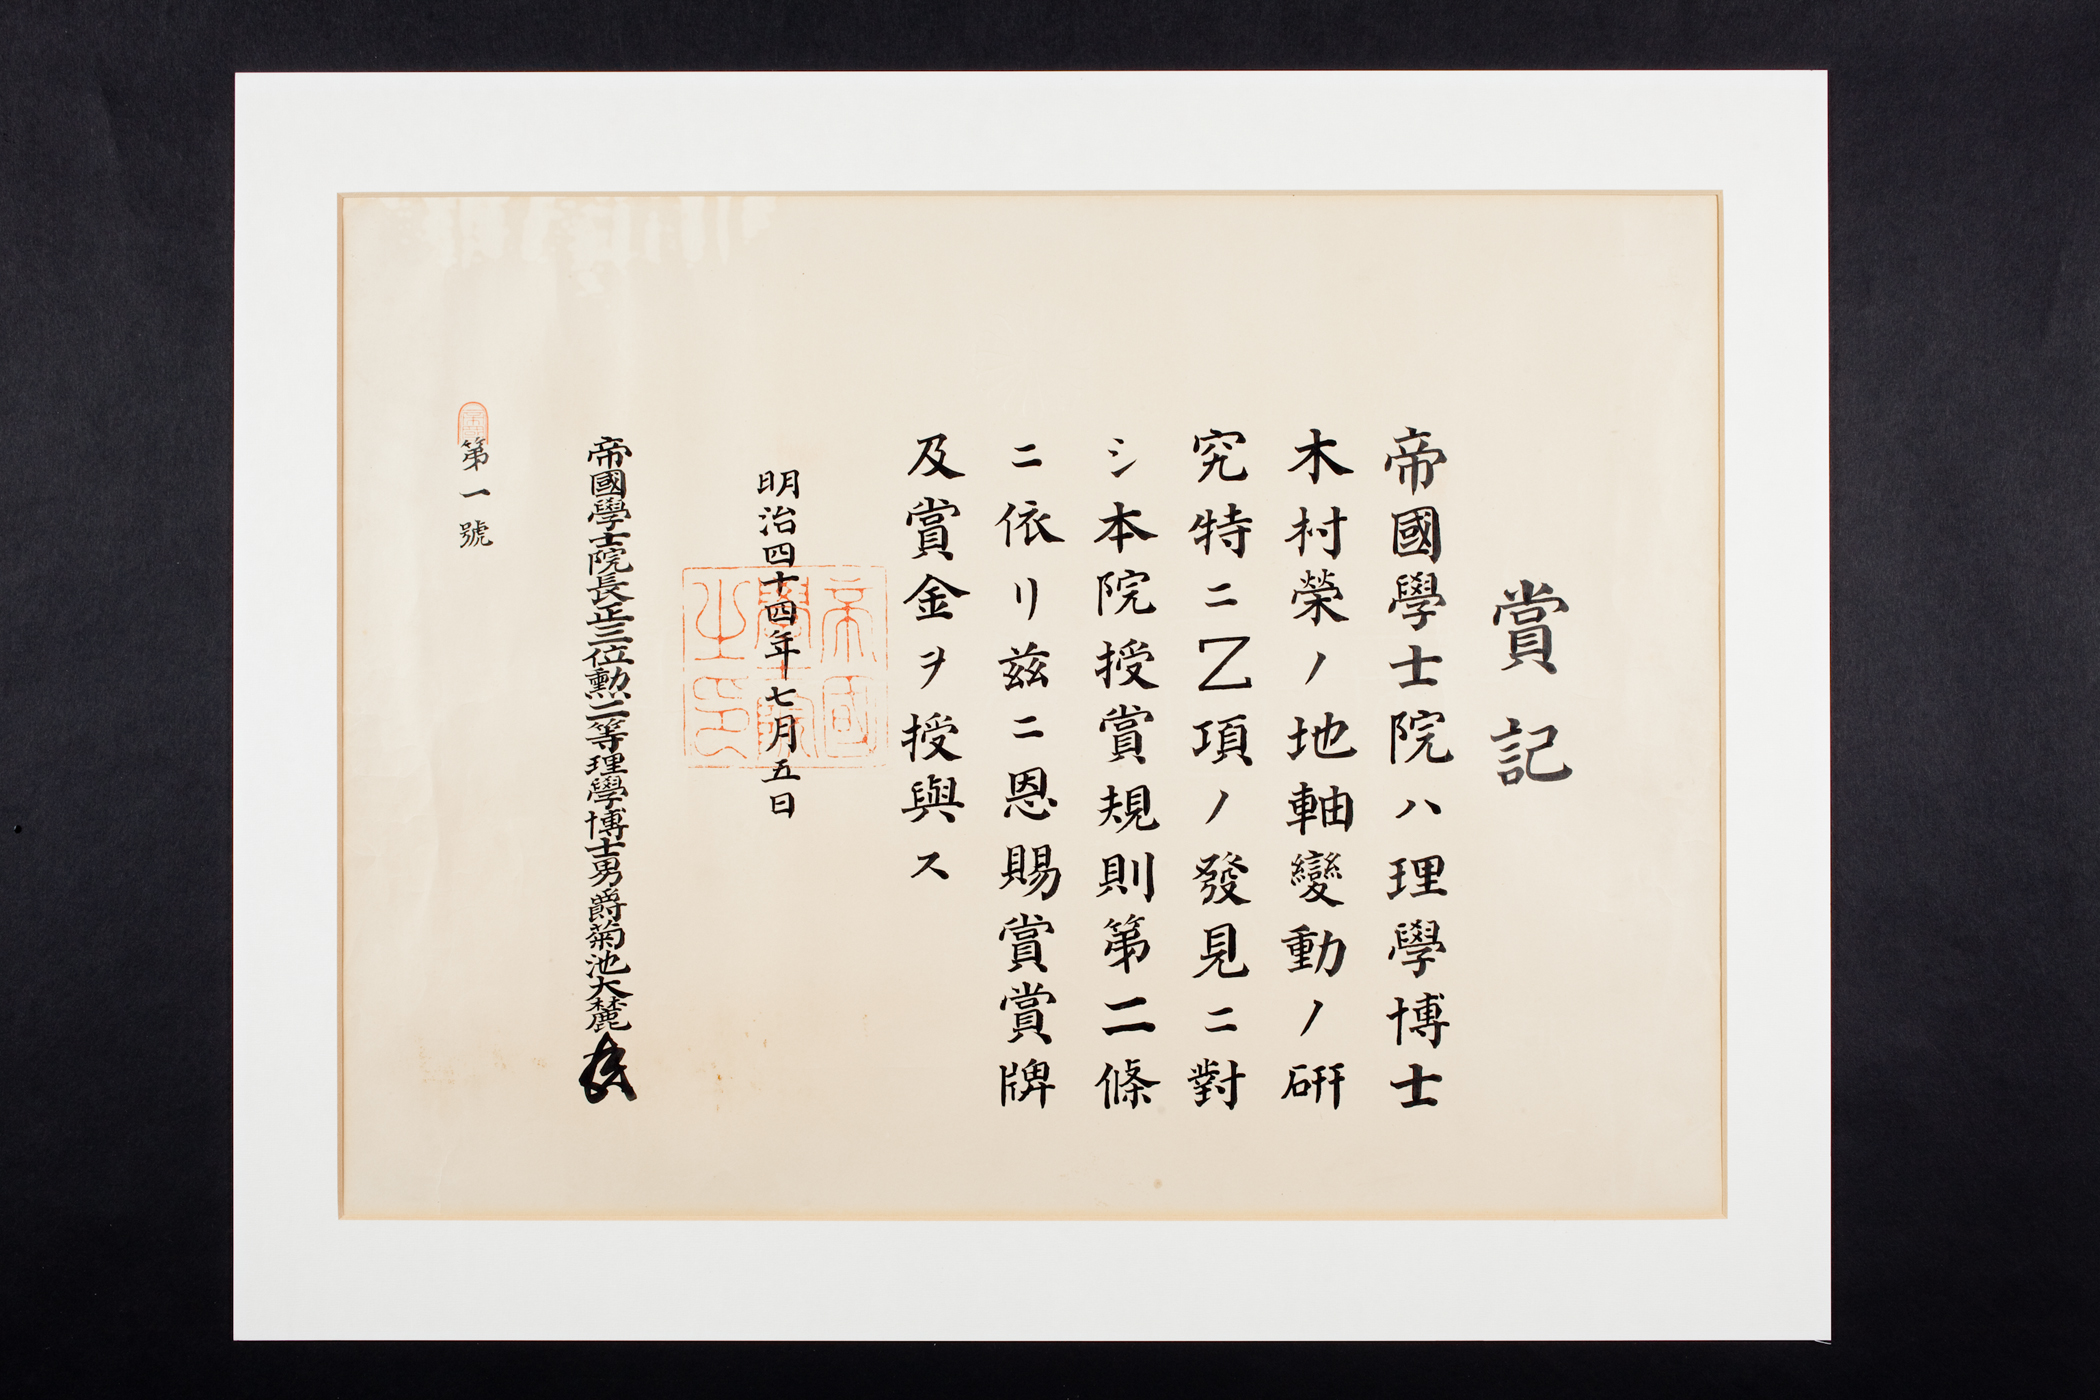 賞記
帝國學士院ハ理學博士
木村榮ノ地軸變動ノ研
究特ニ乙項ノ發見ニ對
シ本院授賞規則第二條
ニ依リ玆ニ恩賜賞賞牌
及賞金ヲ授與ス
明治四十四年七月五日
帝國學士院之印
帝國學士院長正三位勲二等理學博士男爵菊池大麓
第一號